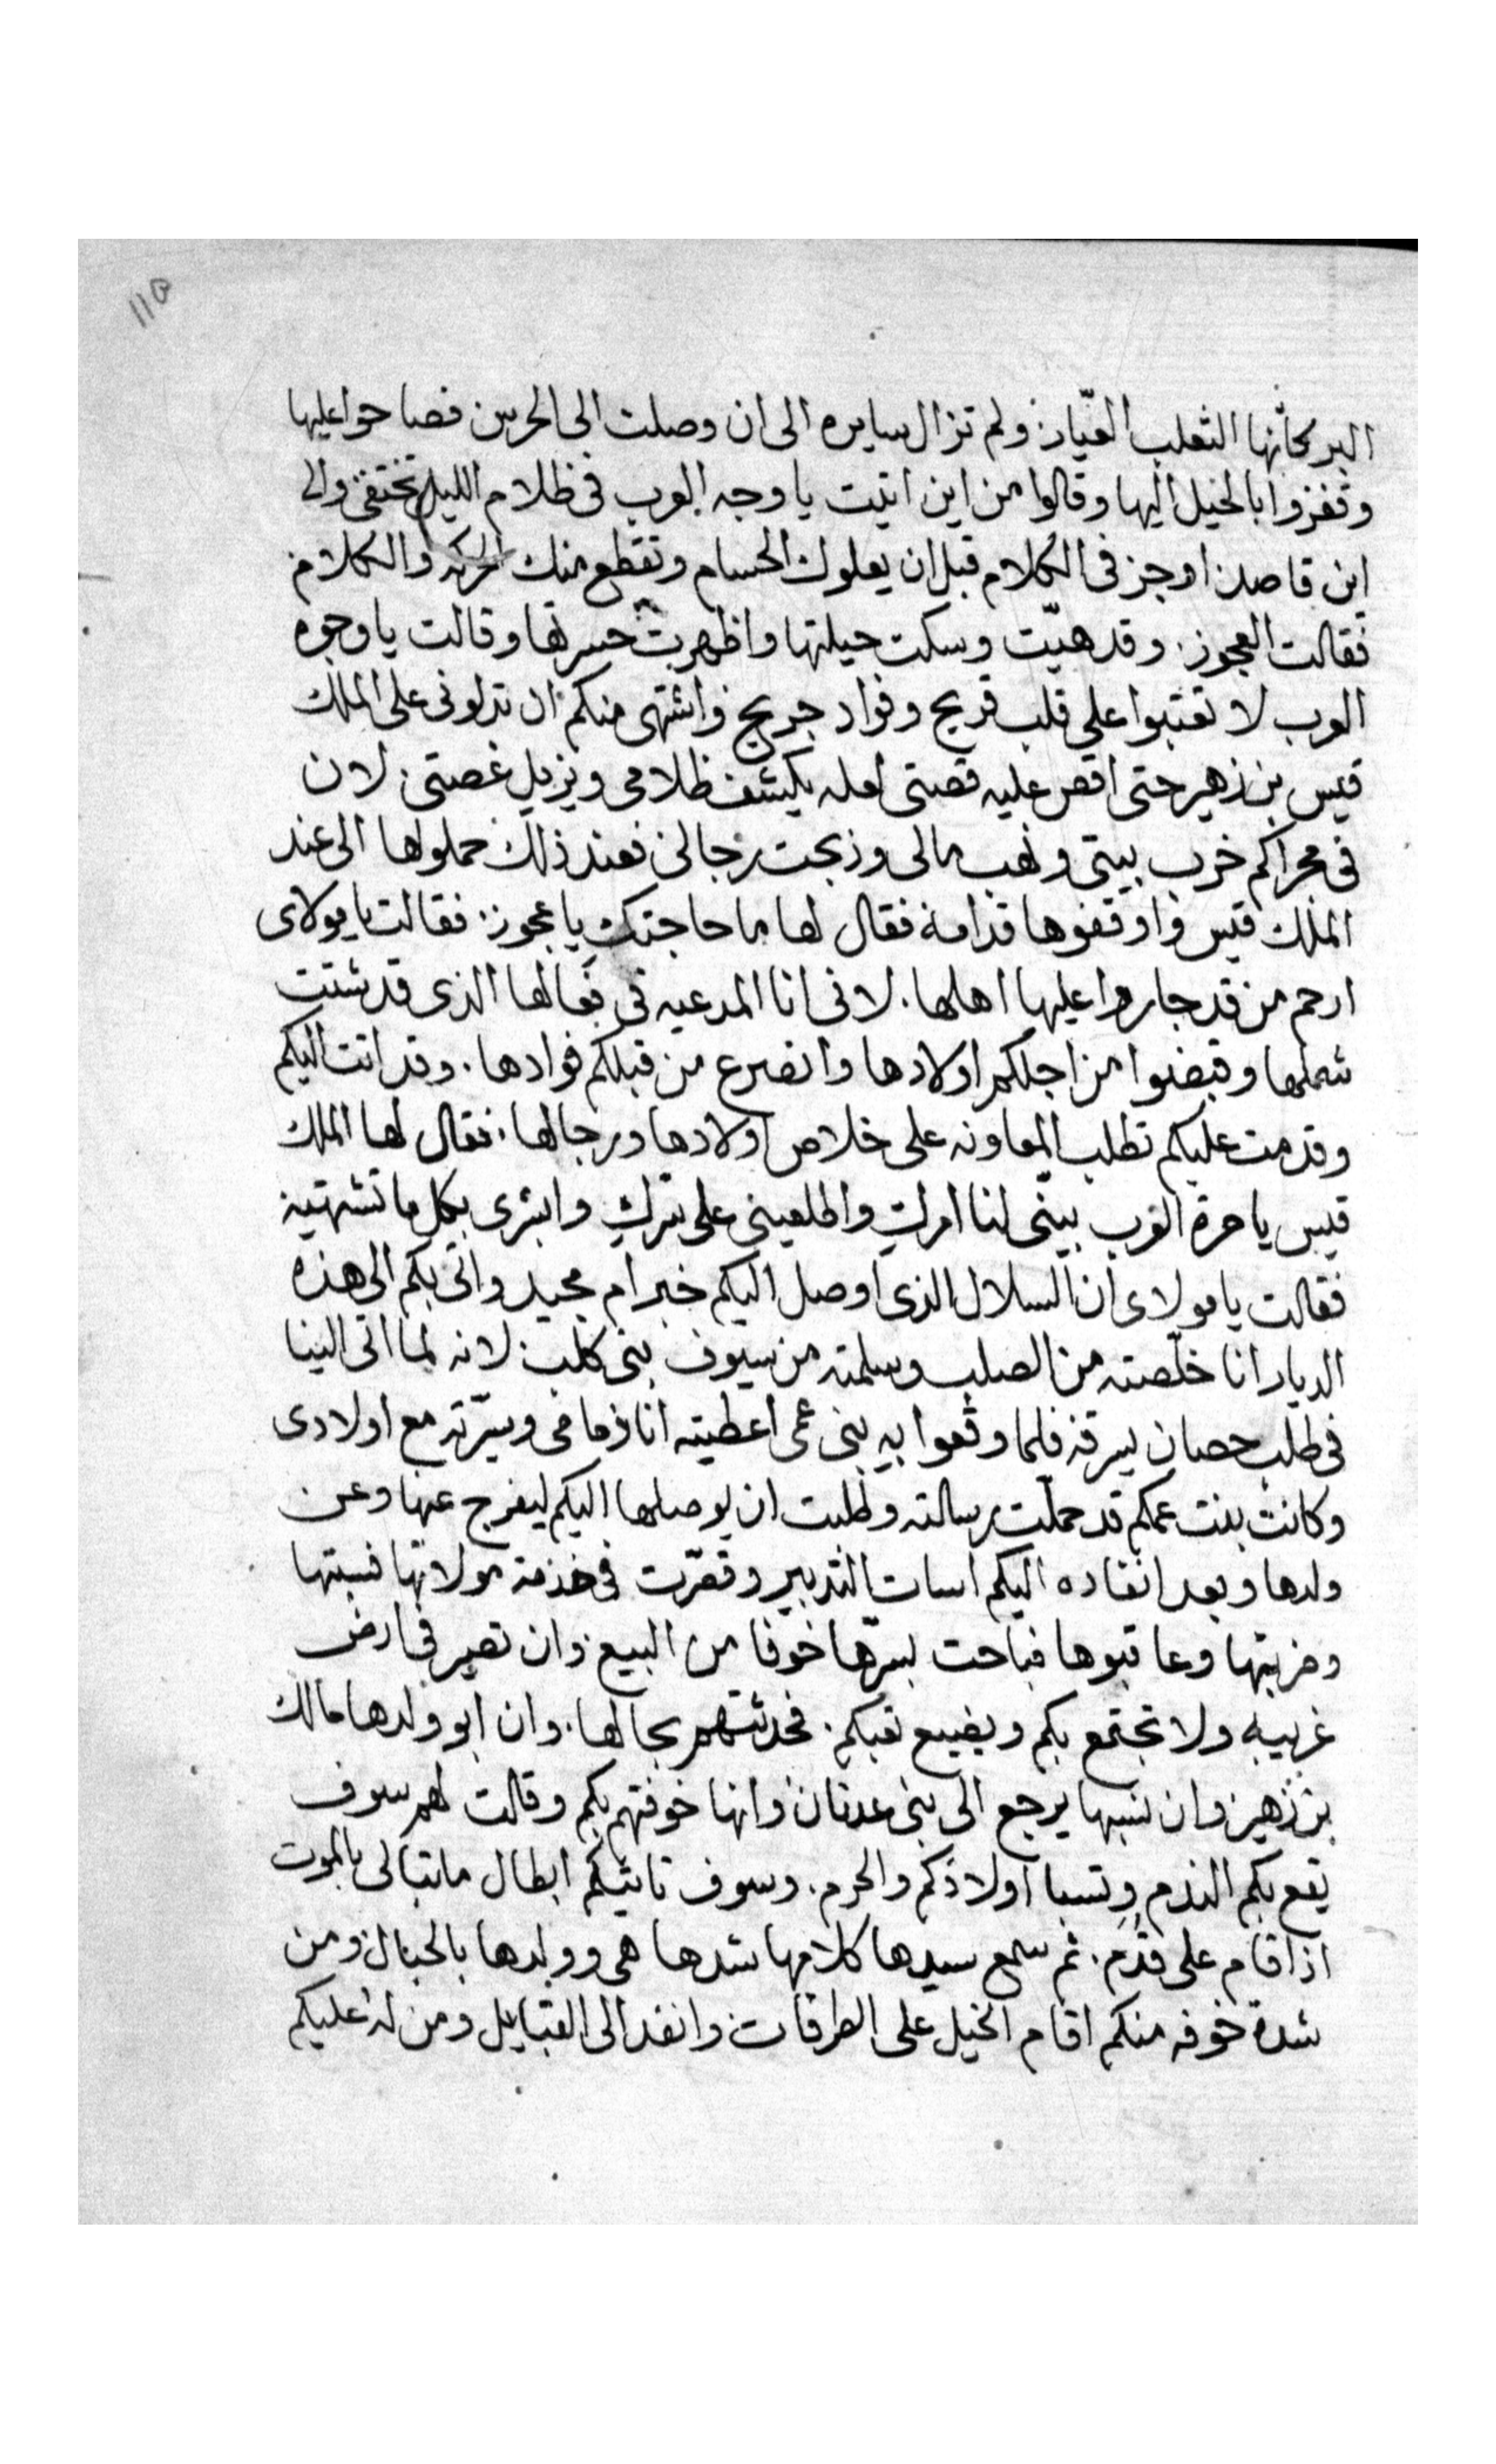 ١١٥
البر كأنها الثعلب العيّار. ولم تزال سايره الى ان وصلت الى الحرس فصاحوا عليها
وقفزوا بالخيل اليها وقالوا من اين اتيت يا وجه العرب فى ظلام الليل تختفى والى
اين قاصد. اوجز فى الكلام قبل ان يعلوك الحسام وتقطع منك الحركه والكلام
فقالت العجوز. وقد هيّت وسكت حيلتها واظهرت حسرتها وقالت يا وجوه
العرب لا تعتبوا على قلب قريح وفواد جريح واشتهى منكم ان تدلونى على الملك
قيس بن زهير حتى اقص عليه قصتى لعله يكشف ظلامى ويزيل غصتى. لان
فى مجراكم خرب بيتى ونهب مالى وذبحت رجالى فعند ذلك حملوها الى عند
الملك قيس واوقفوها قدامه فقال لها ما حاجتك يا عجوز. فقالت يا مولاى
ارحم من قد جاروا عليها اهلها. لانى انا المدعيه فى فعالها الذى قد شتت
شملها وقبضوا من اجلكم اولادها وانصرع من قبلكم فوادها. وقد اتت اليكم
وقدمت عليكم تطلب المعاونه على خلاص اولادها ورجالها. فقال لها الملك
قيس يا حرة العرب بيّنى لنا امرك واطلعينى على سرك وابشرى بكل ما تشتهيه
فقالت يا مولاى ان السلال الذى اوصل اليكم خبر ام مجيد واتى بكم الى هذه
الديار انا خلّصته من الصلب وسلمته من سيوف بنى كلب. لانه لما اتى الينا
فى طلب حصان يسرقه فلما وقعوا به بنى عمى اعطيته انا ذمامى وسيّرته مع اولادى
وكانت بنت عمكم قد حملت رسالته وطلبت ان يوصلها اليكم ليفرج عنها وعن
ولدها وبعد انفاده اليكم اسات التدبير وقصّرت فى خدمة مولاتها فسبتها
وضربتها وعاقبوها فباحت بسرّها خوفا من البيع وان تصير فى ارض
غريبه ولا تجتمع بكم ويضيع تعبكم. فحدثتهم بحالها. وان ابو ولدها مالك
بن زهير. وان نسبها يرجع الى بنى عدنان وانها خوفتهم بكم وقالت لهم سوف
يقع بكم الندم وتسبا اولادكم والحرم. وسوف تاتيكم ابطال ما تبالى بالموت
اذا قام على قدم. ثم سمع سيدها كلامها شدها هى وولدها بالحبال ومن
شدة خوفه منكم اقام الخيل على الطرقات وانفد الى القبايل ومن له عليكم